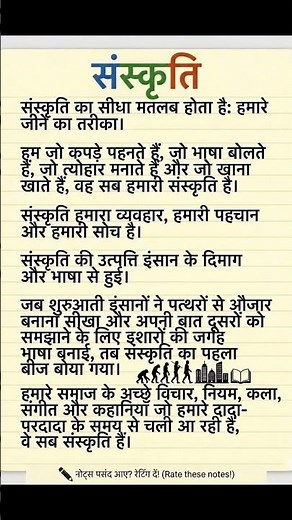 संस्कृति
संस्कृति का सीधा मतलब होता है: हमारे
जीने का तरीका।
हम जो कपड़े पहनते हैं, जो भाषा बोलते
हैं, जो त्योहार मनाते हैं और जो खाना
खाते हैं, वह सब हमारी संस्कृति है।
संस्कृति हमारा व्यवहार, हमारी पहचान
और हमारी सोच है।
संस्कृति की उत्पत्ति इंसान के दिमाग
और भाषा से हुई।
जब शुरुआती इंसानों ने पत्थरों से औजार
बनाना सीखा और अपनी बात दूसरों को
समझाने के लिए इशारों की जगह
भाषा बनाई, तब संस्कृति का पहला
बीज बोया गया।
हमारे समाज के अच्छे विचार, नियम, कला,
संगीत और कहानियां जो हमारे दादा-
परदादा के समय से चली आ रही है,
वे सब संस्कृति हैं।
नोट्स पसंद आए? रेटिंग दें! (Rate these notes!)